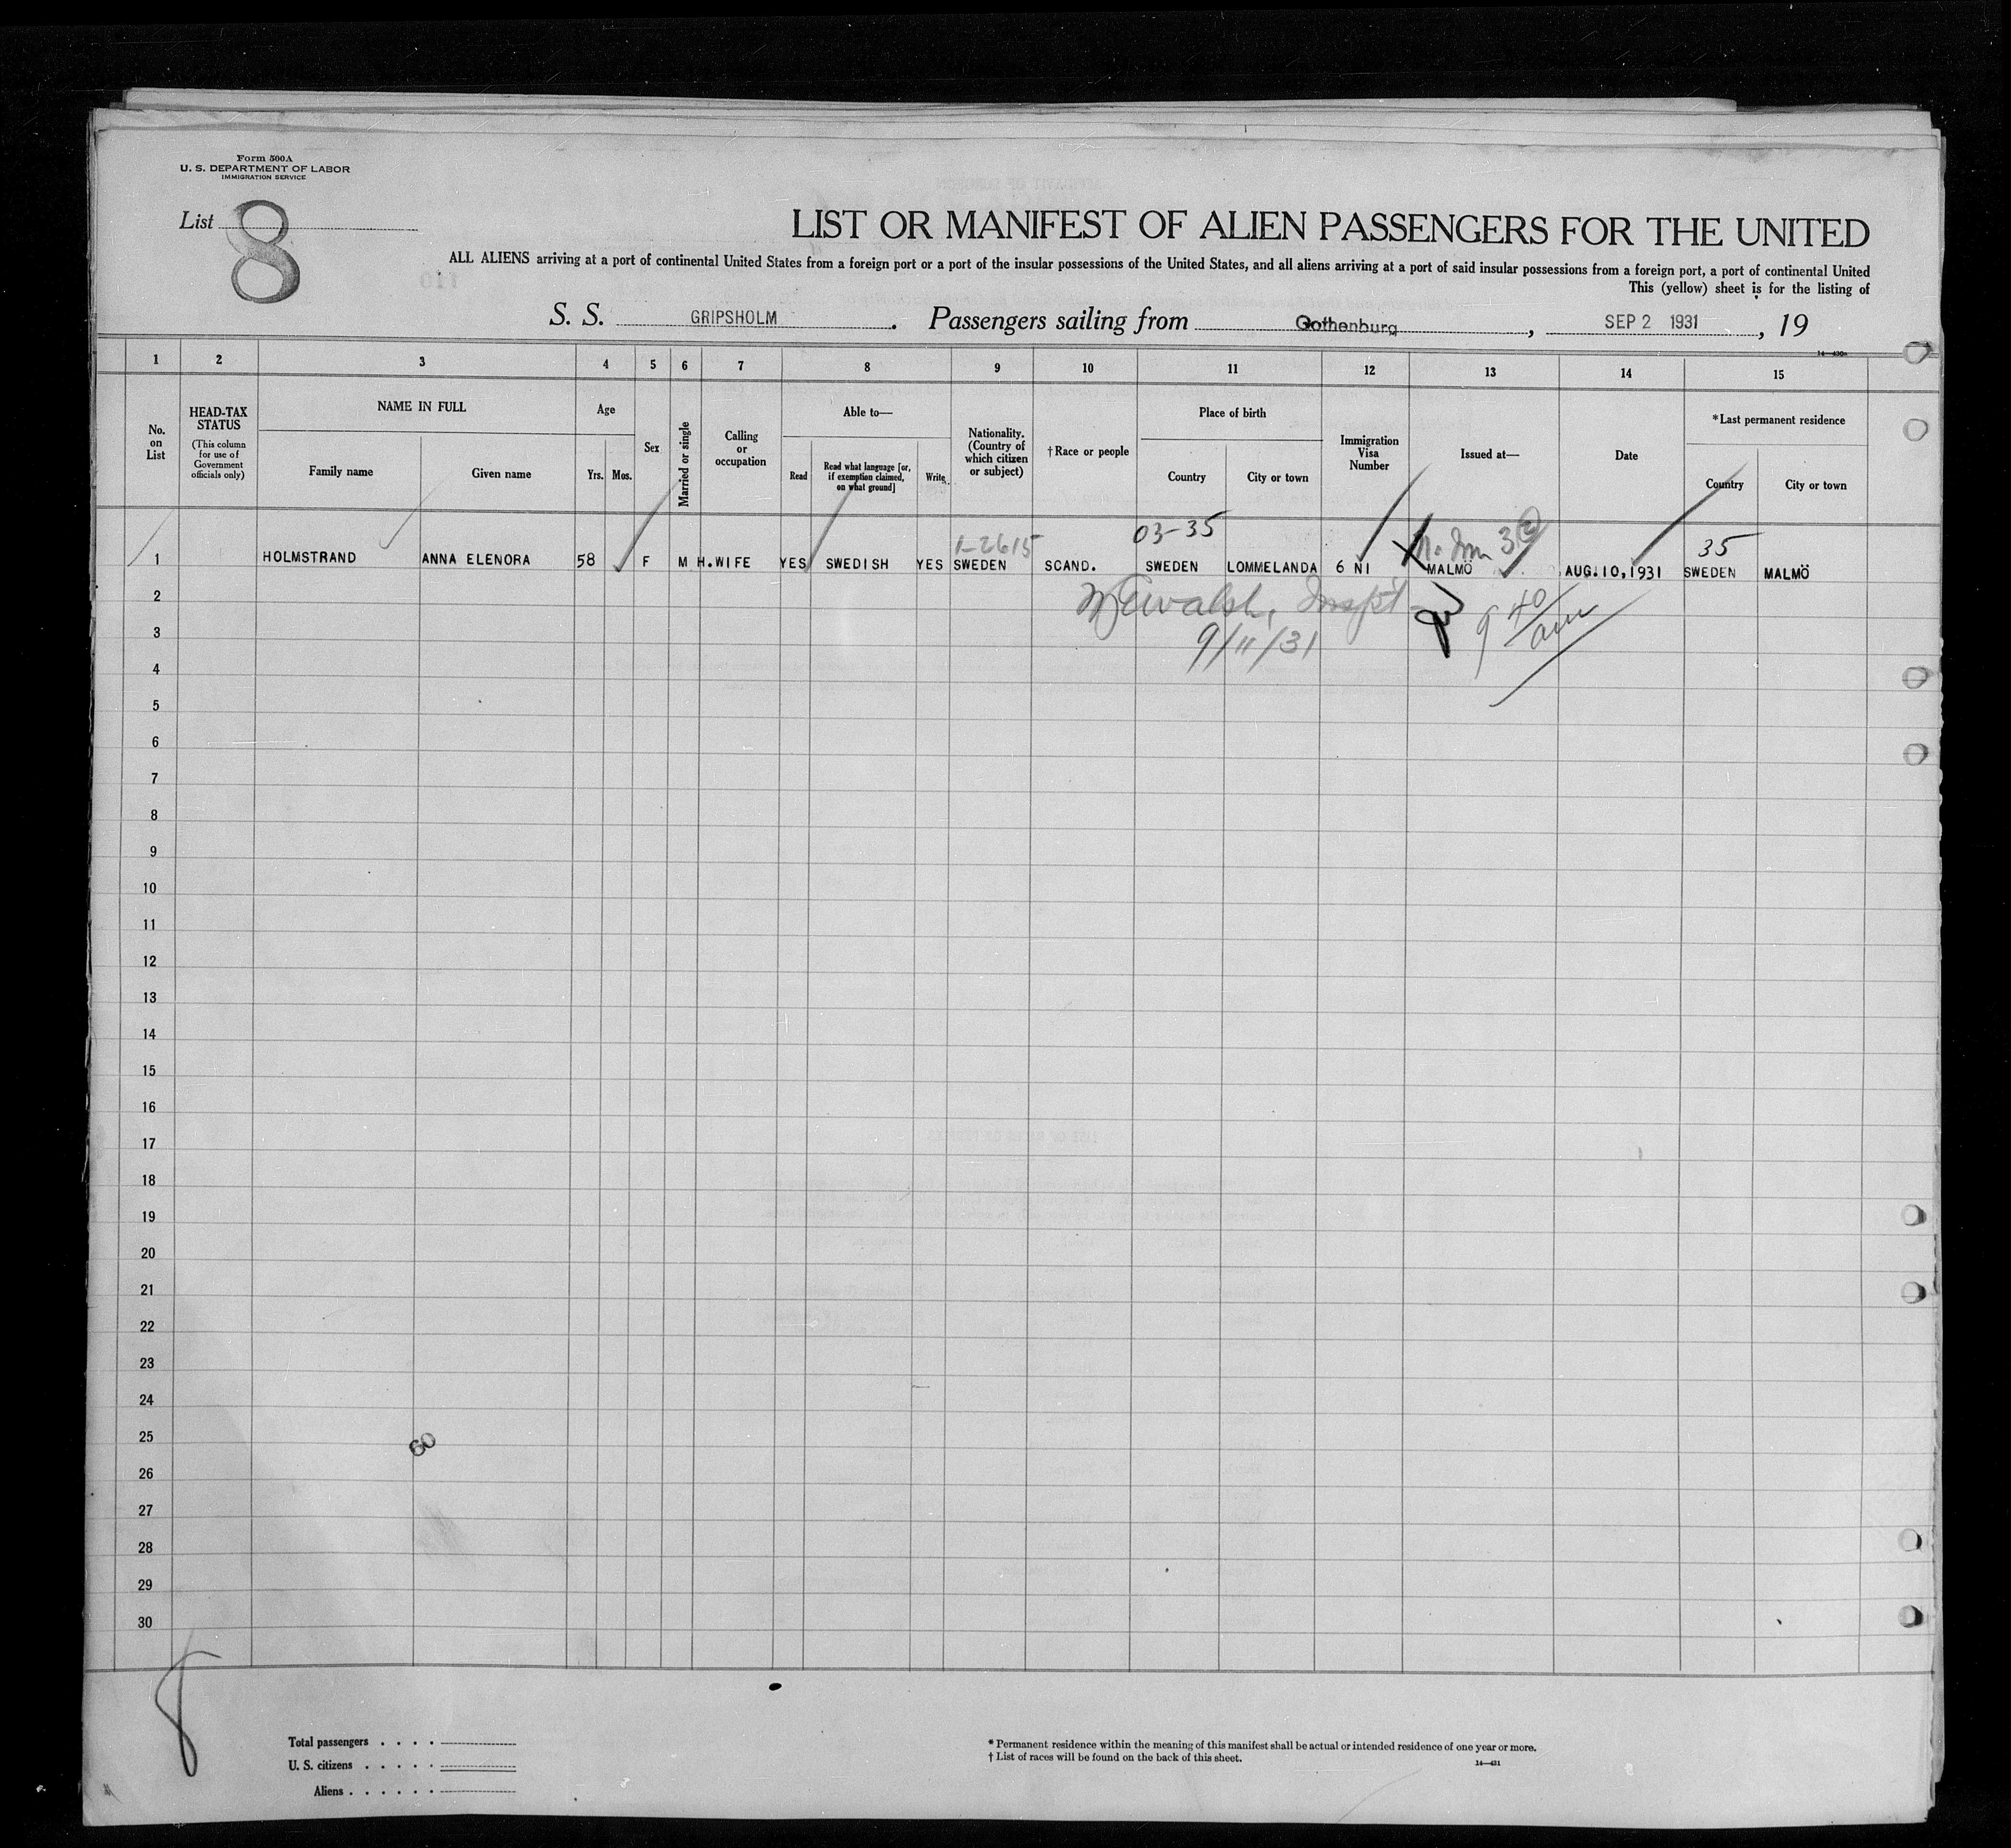 Form 500A
U. S. DEPARTMENT OF LABOR
IMMIGRATION SERVICE
List 8
LIST OR MANIFEST OF ALIEN PASSENGERS FOR THE UNITED
ALL ALIENS arriving at a port of continental United States from a foreign port or a port of the insular possessions of the United States, and all aliens arriving at a port of said insular possessions from a foreign port, a port of continental United
This (yellow) sheet is for the listing of
110
S. S. GRIPSHOLM. Passengers sailing from Gothenburg, SEP 2 1931, 19
14—430
1 2 3 4 5 6 7 8 9 10 11 12 13 14 15
No. on List
HEAD-TAX STATUS
(This column for use of Government officials only)
NAME IN FULL
Family name
Given name
Age
Yrs. Mos.
Sex
Married or single
Calling or occupation
Able to—
Read
Read what language [or, if exemption claimed, on what ground]
Write
Nationality. (Country of which citizen or subject)
†Race or people
Place of birth
Country
City or town
Immigration Visa Number
Issued at—
Date
*Last permanent residence
Country
City or town
1-2615 03-35 35
1 HOLMSTRAND ANNA ELENORA 58 F M H.WIFE YES SWEDISH YES SWEDEN SCAND. SWEDEN LOMMELANDA 6 NI MALMÖ AUG.10,1931 SWEDEN MALMÖ
2 Walsh, Inspt 9 40 am
3 9/11/31
4
5
6
7
8
9
10
11
12
13
14
15
16
17
18
19
20
21
22
23
24
25
60
26
27
28
29
30
8
Total passengers . . . .
U. S. citizens . . . . .
Aliens . . . . . .
* Permanent residence within the meaning of this manifest shall be actual or intended residence of one year or more.
† List of races will be found on the back of this sheet.
14—431